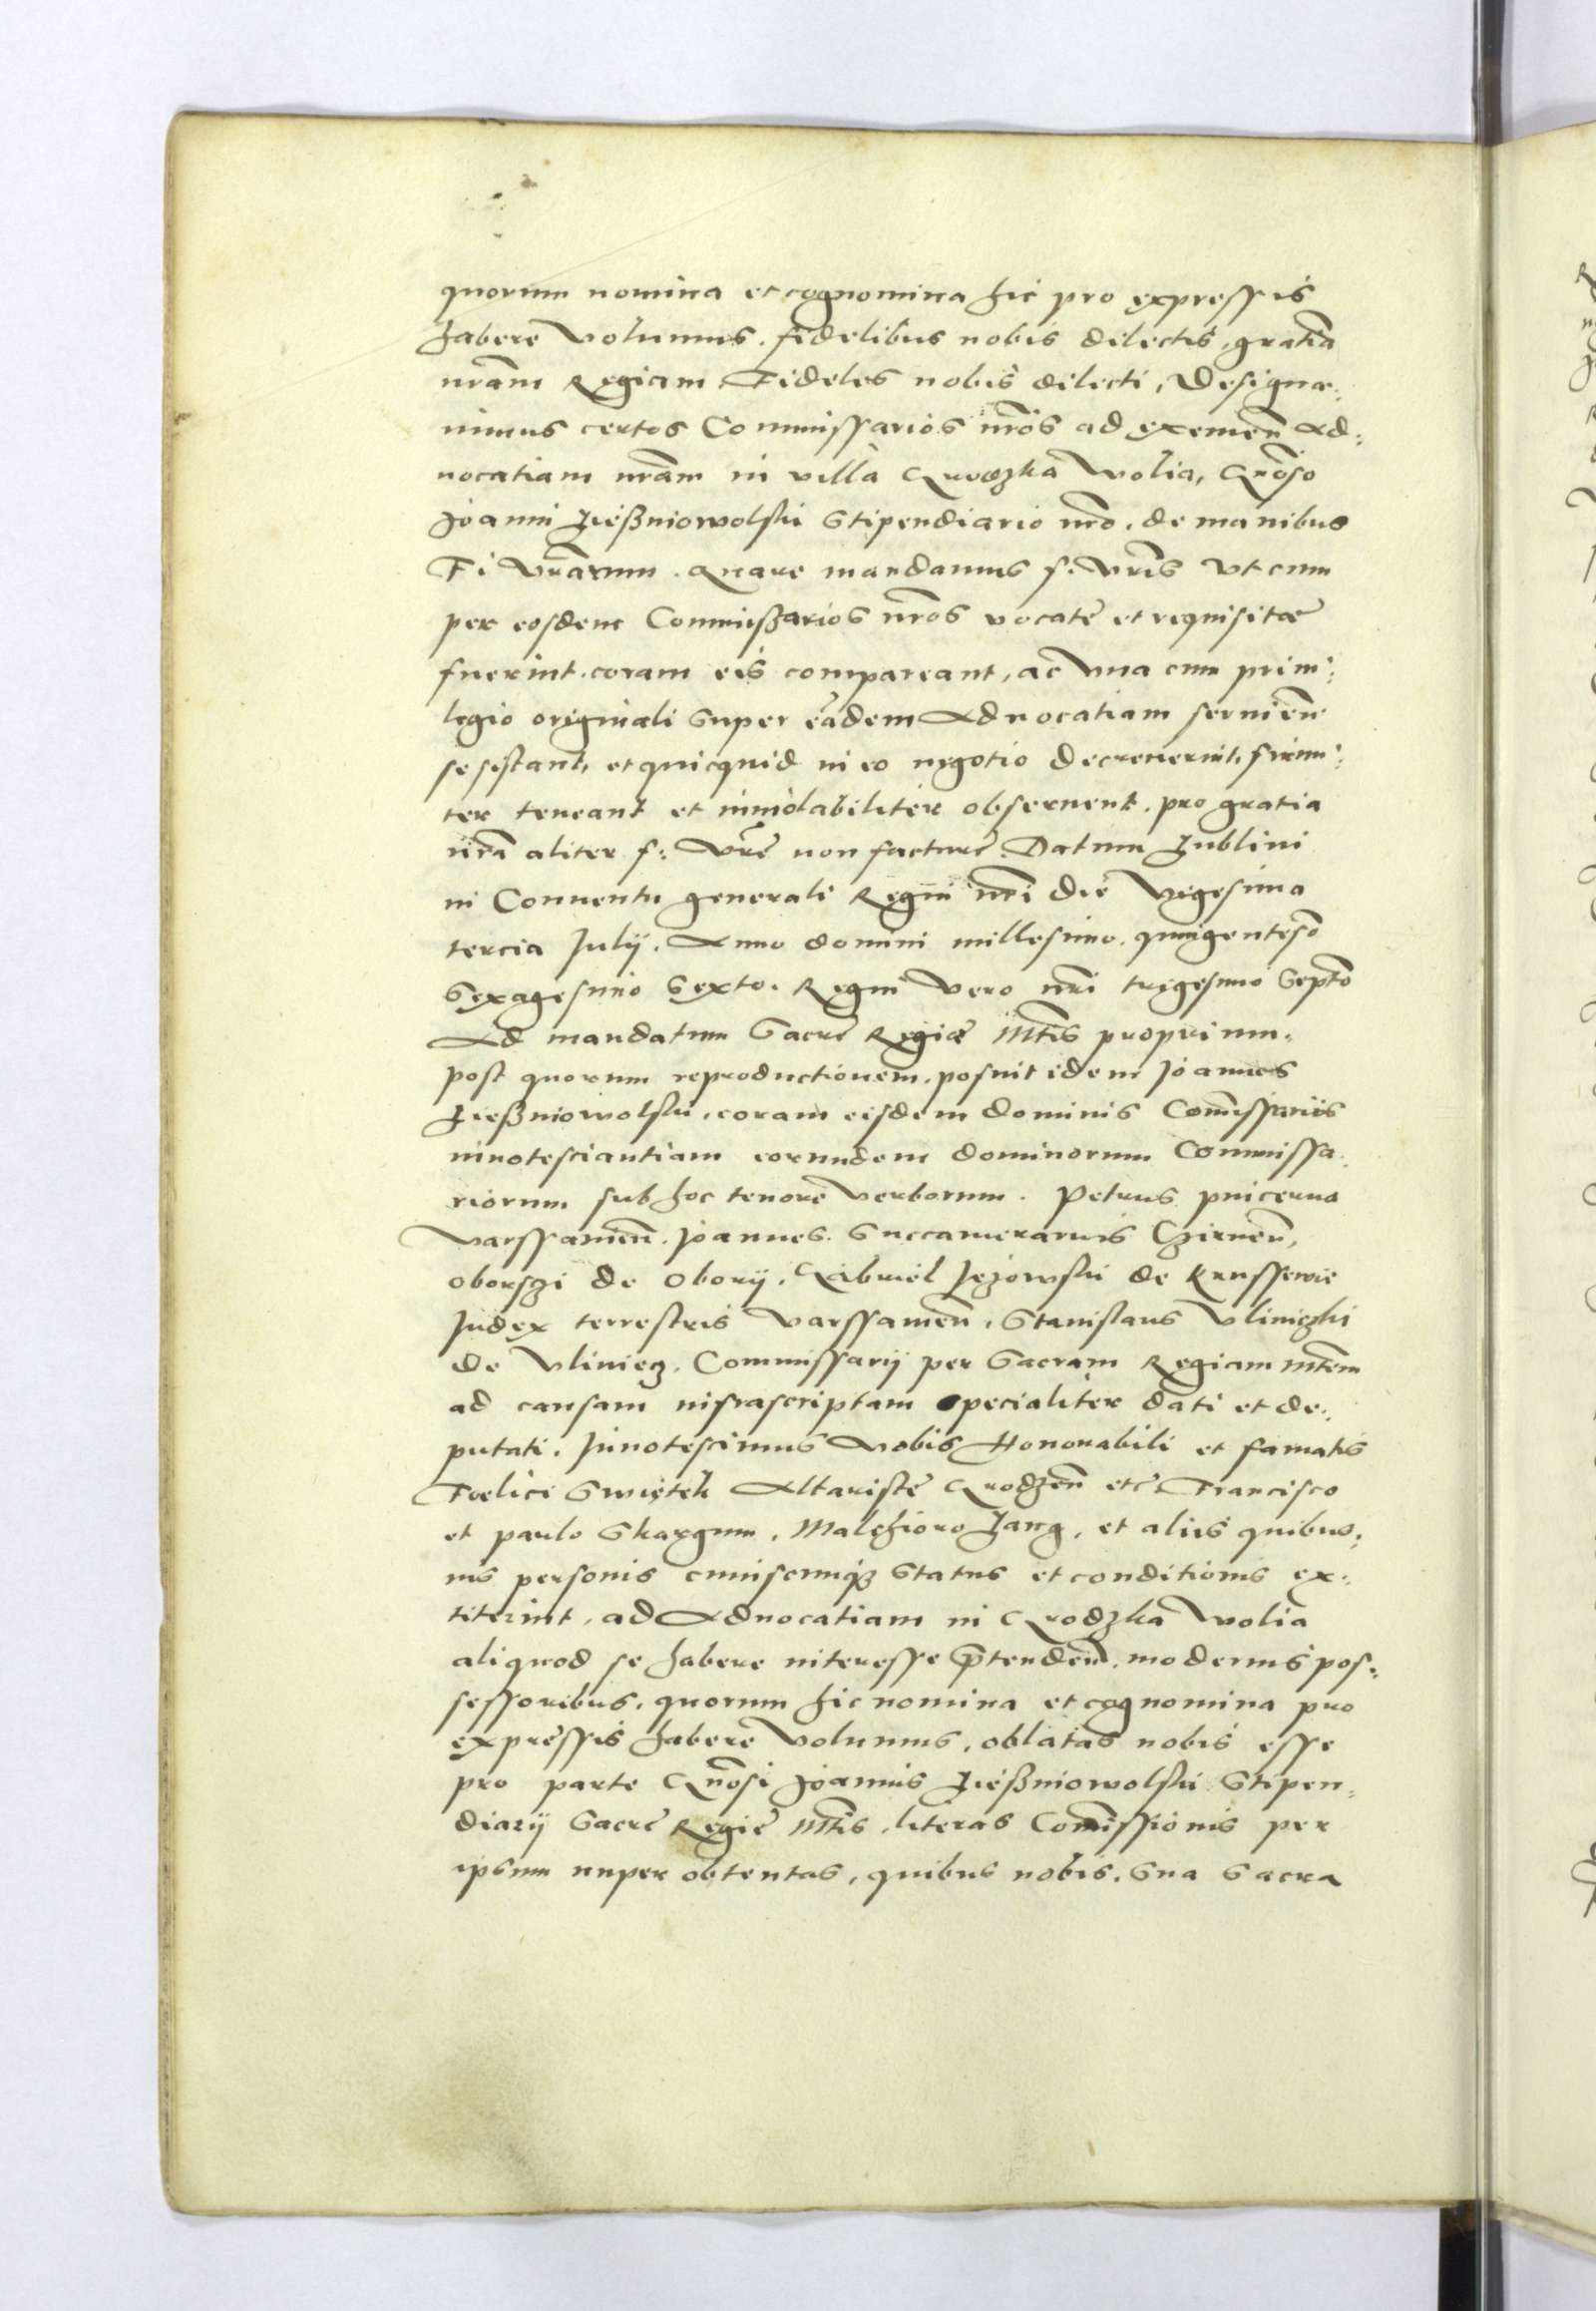 quorum nomina et cognomina hic pro expressis
habere volumus. fidelibus nobis dilectis, gratiã
nrãm Regiam. Fideles nobis dilecti, Designa:
uimus certos Commissarios nrõs ad eximeñ Ad:
uocatiam nrãm in villa Groczka Wolia, Gñoso
Joanni Liesßniowolski Stipendiario nrõ. de manibus
F: Vrãrum. Quare mandamus f. vrĩs vt cum
per eosdem Commisßarios nrõs vocatę et requisitæ
fuerint. coram eis compareant, ac vna cum priui:
legio originali super eãdem Aduocatiam seruieñ
se sistant, et quicquid in eo negotio decreuerint, firmi:
ter teneant et inuiolabiliter obseruent. pro gratia
nrã aliter f: Vrę non facturę. Datum Lublini
in Conuentu generali Regni nrĩ die Vigesima
tercia Julij. Anno domini millesimo. quingentesõ
Sexagesimo Sexto. Regni vero nrĩ trigesimo Septõ
Ad mandatum Sacrę Regiæ Mtĩs proprium.
post quorum reproductionem. posuit idem Joannes
Liesßniowolski. coram eisdem dominis Comissariis
innotesciantiam eorundem dominorum Commissa:
riorum sub hoc tenore verborum. Petrus pincerna
Varssauieñ. Joannes. Succamerarius Czirneñ,
oborszi de Oborij. Gabriel Jezowski de Krussewie
Judex terrestris Varssauieñ. Stanislaus Vliniczki
de Vliniecz. Commissarij per Sacram Regiam mtẽm
ad causam infrascriptam specialiter dati et de:
putati. Innotescimus vobis Honorabili et famatis
Fœlici Swiętek Altaristę Grodzeñ etc Francisco
et paulo Skargum. Malchioro Lang. et aliis quibus:
uis personis cuiuscunqȝ status et conditionis ex:
titerint. ad Aduocatiam in Grodzka Wolia
aliquod se habere interesse p̃tendeñ. modernis pos:
sessoribus. quorum hic nomina et cognomina pro
expressis habere volumus. oblatas nobis esse
pro parte Gñosi Joannis Liesßniowolski Stipen:
diarij Sacrę Regię Mtĩs. literas Comissionis per
ipsum nuper obtentas, quibus nobis. Sua Sacra